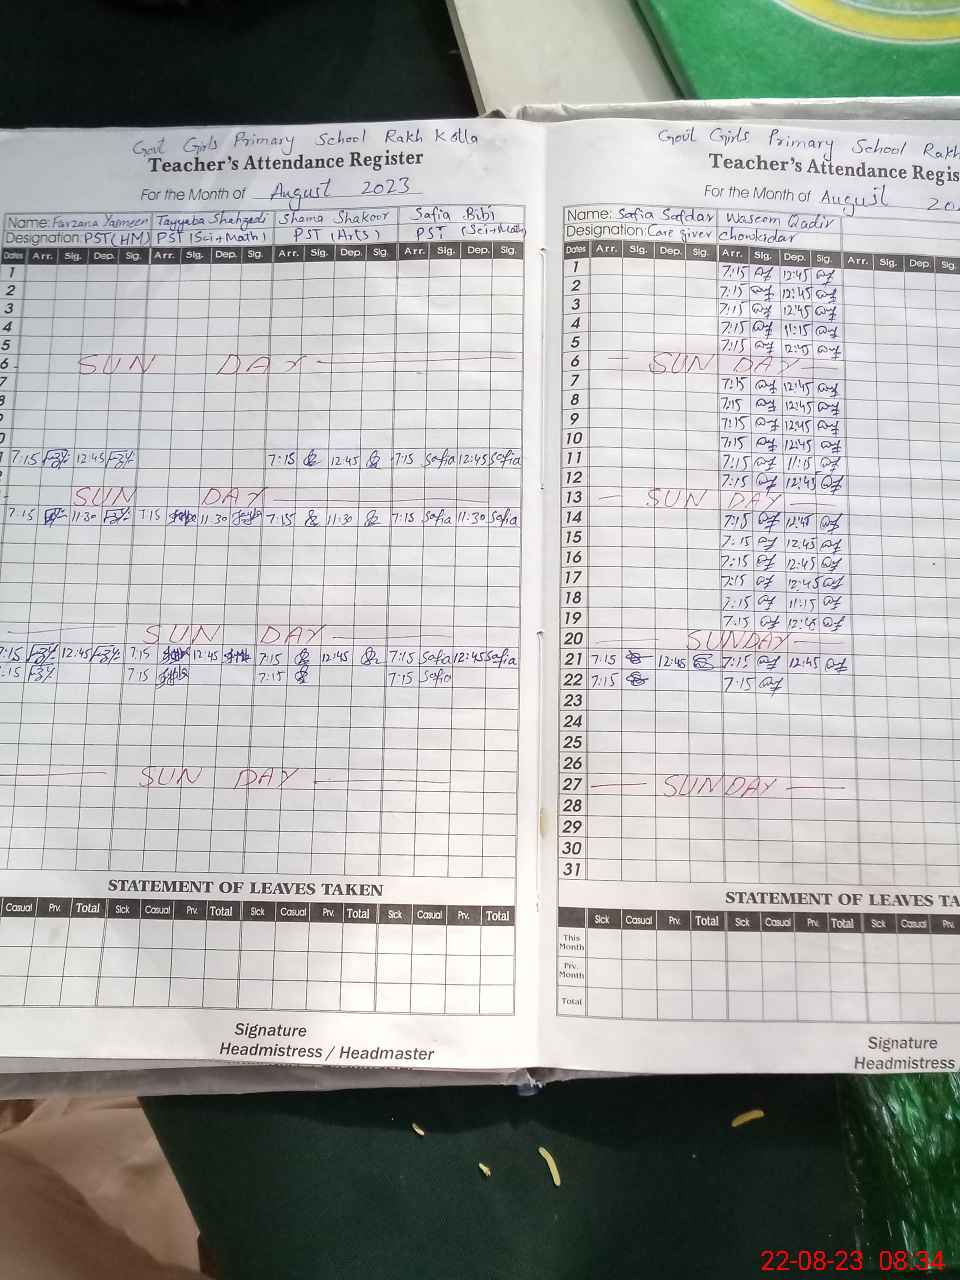 Govt Girls Primary School Rakh Kolla
Teacher's Attendance Register
For the Month of August 2023
Name: Farzana Yasmeen Tayyaba Shahzadi Shama Shakoor Safia Bibi
Designation: PST (HM) PST (Sci+Math) PST (Arts) PST (Sci+Math)
Dates Arr. Sig. Dep. Sig. Arr. Sig. Dep. Sig. Arr. Sig. Dep. Sig. Arr. Sig. Dep. Sig.
1
2
3
4
5
6 SUN DAY
7
8
9
0
1 7:15 12:45 7:15 12:45 7:15 Safia 12:45 Safia
SUN DAY
7:15 11:30 7:15 11:30 7:15 11:30 7:15 Safia 11:30 Safia
SUN DAY
7:15 12:45 7:15 12:45 7:15 12:45 7:15 Safia 12:45 Safia
7:15 7:15 7:15 7:15 Safia
SUN DAY
STATEMENT OF LEAVES TAKEN
Casual Prv. Total Sick Casual Prv. Total Sick Casual Prv. Total Sick Casual Prv. Total
Signature
Headmistress / Headmaster
Govt Girls Primary School Rakh
Teacher's Attendance Regis
For the Month of August 20
Name: Safia Safdar Waseem Qadir
Designation: Care giver Chowkidar
Dates Arr. Sig. Dep. Sig. Arr. Sig. Dep. Sig. Arr. Sig. Dep. Sig.
1 7:15 12:45
2 7:15 12:45
3 7:15 12:45
4 7:15 11:15
5 7:15 12:45
6 SUN DAY
7 7:15 12:45
8 7:15 12:45
9 7:15 12:45
10 7:15 12:45
11 7:15 11:15
12 7:15 12:45
13 SUN DAY
14 7:15 12:45
15 7:15 12:45
16 7:15 12:45
17 7:15 12:45
18 7:15 11:15
19 7:15 12:45
20 SUNDAY
21 7:15 12:45 7:15 12:45
22 7:15 7:15
23
24
25
26
27 SUNDAY
28
29
30
31
STATEMENT OF LEAVES TA
Sick Casual Prv. Total Sick Casual Prv. Total Sick Casual Prv.
This Month
Prv. Month
Total
Signature
Headmistress
22-08-23 08:34